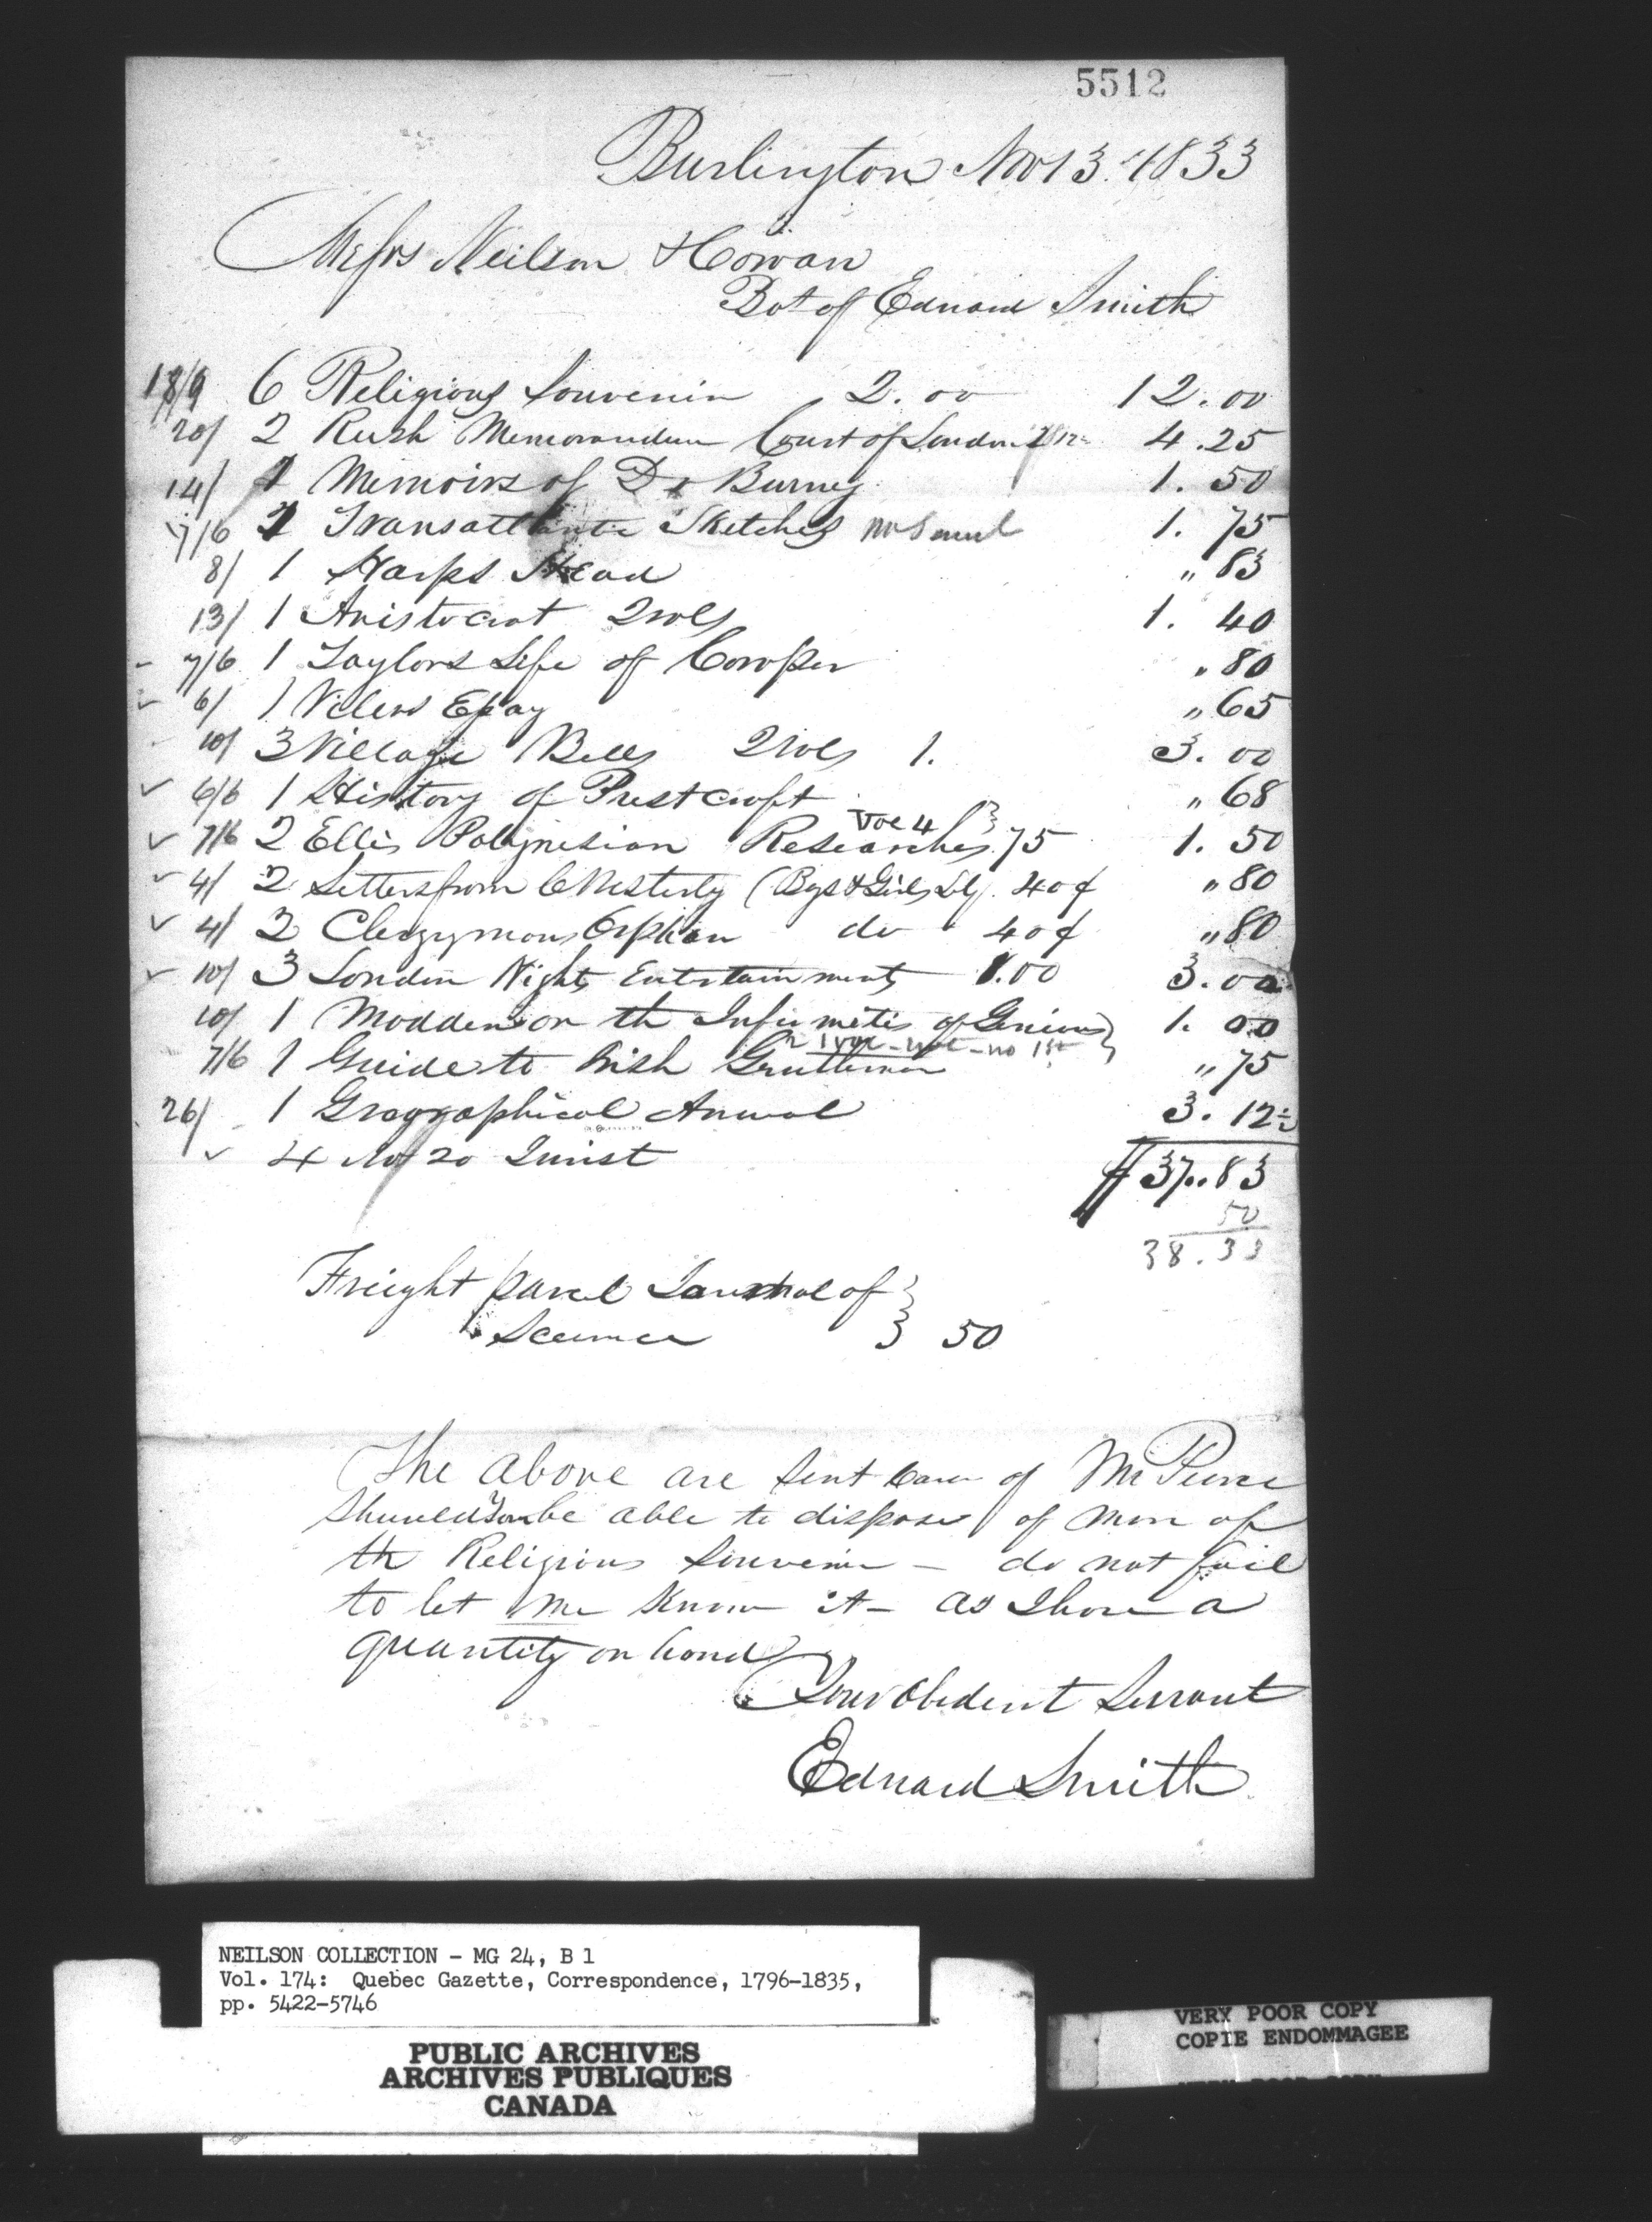 5512
Burlington Nov 13. 1833
Messrs Neilson & Cowan
Bot of Edward Smith
18/9 6 Religious Souvenir 2.00 12.00
20/ 2 Rush Memorandum Court of London 4.25
14/ 1 Memoirs of Dr Burney 1.50
7/6 Transatlantic Sketches 1.75
8/ 1 Harps Head " 83
13/ 1 Aristocrat 2 vols 1.40
7/6 1 Taylors Life of Cowper " 80
6/ 1 Essay " 65
10/ 3 Village Belles 2 vols 1. 3.00
6/6 1 History of Priestcraft " 68
7/6 2 Ellis Polynesian Researches Vol 4 } 75 1.50
4/ 2 Letters from (Boys & Girls Lby. 40¢ " 80
4/ 2 Clergymans Orphan do 40¢ " 80
10/ 3 London Nights Entertainments 1.00 3.00
10/ 1 Madden on the Infirmities of Genius } 1.00
7/6 1 Guide to Irish Gentleman " 75
26/ 1 Geographical Annual 3.12½
4 No 20 $37..83
50
38.33
Freight parcel Journal of }
Science } 50
The above are sent care of Mr Pierce
Should you be able to dispose of more of
the Religious Souvenir – do not fail
to let me know it – as I have a
quantity on hand
Your Obedient Servant
Edward Smith
NEILSON COLLECTION - MG 24, B 1
Vol. 174: Quebec Gazette, Correspondence, 1796-1835,
pp. 5422-5746
PUBLIC ARCHIVES
ARCHIVES PUBLIQUES
CANADA
VERY POOR COPY
COPIE ENDOMMAGEE